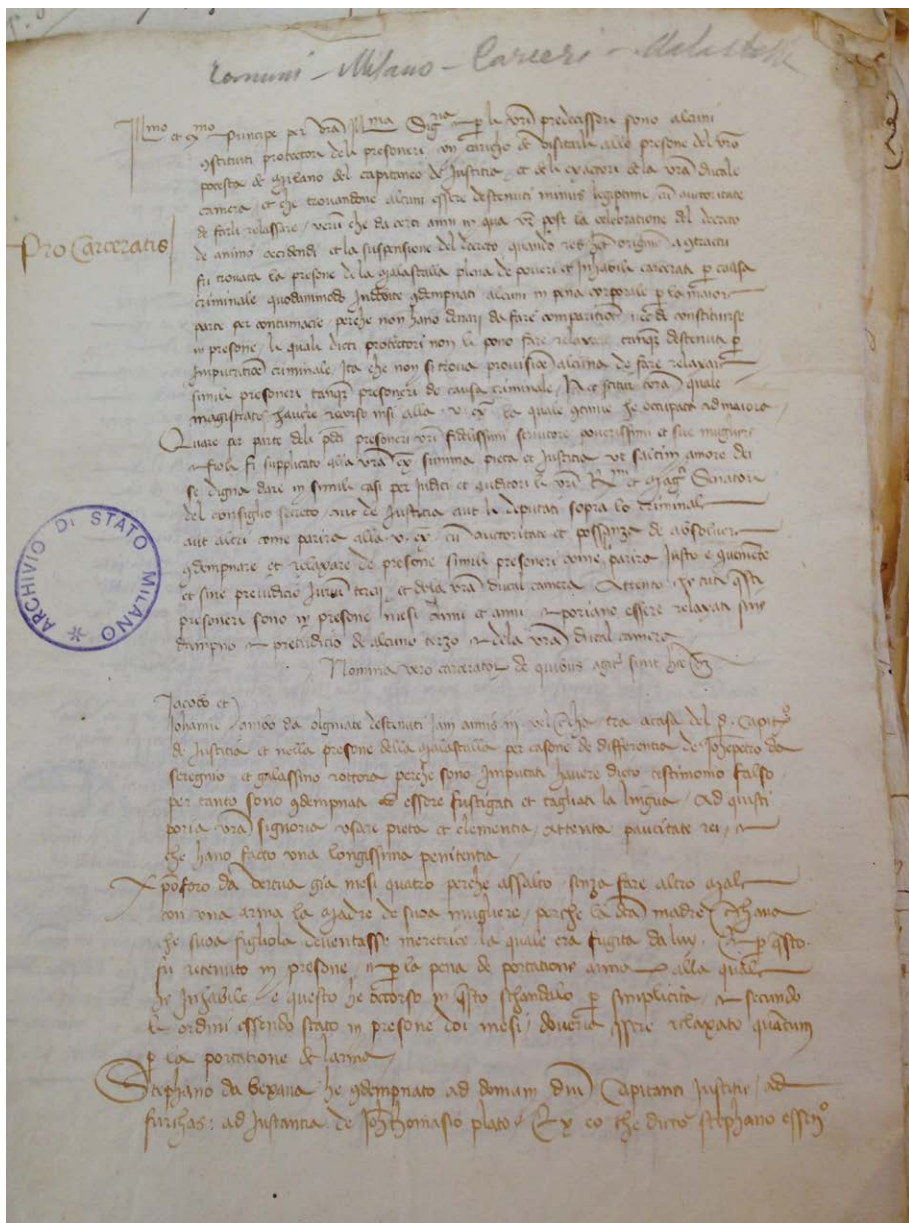 Comuni - Milano - Carceri - Malastalla
Illmo et exmo principe per vra Illma Signa et p li vri predecessori sono alcuni
constituti protectori deli presoneri cun caricho de visitarli alle presone del vro
potesta de Milano del capitaneo de Justicia et deli exactori de la vra ducale
camera et che trovandone alcuni essere destenuti minus legiptime cu auctoritate
de farli relassare verum che da certi anni in qua post la celebratione del decreto
Pro Carceratis
de animo occidendi et la suspensione del decreto quando res origine a contractu
fi trovata la presone de la Malastalla plena de poveri et Inhabile carcerati p causa
criminale quodammodo Indebite condempnati alcuni in pena corporale p la maior
parte per contumacie perche non hano denari da fare comparitione de constituirse
in presone li quali dicti protectori non li pono fare relaxare tanqm destenuti p
Imputatioe criminale Ita che non si trova provisioe alcuna de fare relaxare
simili presoneri tanqm presoneri de causa criminale quale
magistrato havere recorso insi alla v. ex. la quale continue he occupata ad maiora
Quare per parte deli pdti presoneri vri fidelissimi servitore poverissimi et sue mugliere
et fioli fi supplicato alla vra ex summa pieta et Justicia ut saltim amore dei
se digna dare in simili casi per Judici et auditori li vri Rmi et Magci Senatori
del consiglio secreto aut de Justicia aut li deputati sopra lo criminal
aut altri come parira alla v. ex. cu auctoritate et possanza de absolver
condempnare et relaxare de presone simile presoneri come parira Justo e conveniente
et sine preiudicio Jurium tercii et dela vra ducal camera Attento che tuti questi
presoneri sono in presone mesi Anni et anni et poriano essere relaxati sine
dampno et preiudicio de alcuno terzo et dela vra ducal camera
Nomina vero carceratoru de quibus agitr sunt hec
ARCHIVIO DI STATO MILANO
Jacobo et
Johanne ambo da olginate destenuti Jam annis iii vel tra acasa del p. Capito
de Justicia et nella presone della Malastalla per casone de differentia de Johepetro da
seregnio et galassino rottora perche sono Imputati havere dicto testimonio falso
per tanto sono condempnati ad essere fustigati et tagliati la lingua Ad quisti
poria vra signoria usare pieta et clementia attenta paucitate rei et
che hano facto una longissima penitentia
Xpoforo da dervua gia mesi quatro perche assalto senza fare altro mal
con una arma la madre de suoa mugliere perche la dcta madre
che suoa figliola deventasse meretrice la quale era fugita da luy Et p questo
fu retenuto in presone et p la pena de portatione arme alla quale
he inhabile e questo he ocorso in questo schandalo p simplicita et secundo
li ordini essendo stato in presone doi mesi doveria essere relaxato quantum
p la portatione de larma
Stephano da bexana he condempnato ad domum dni Capitanei Justitie ad
furchas ad Justantia de Johthomasio plato Ex eo che dicto stephano essendo